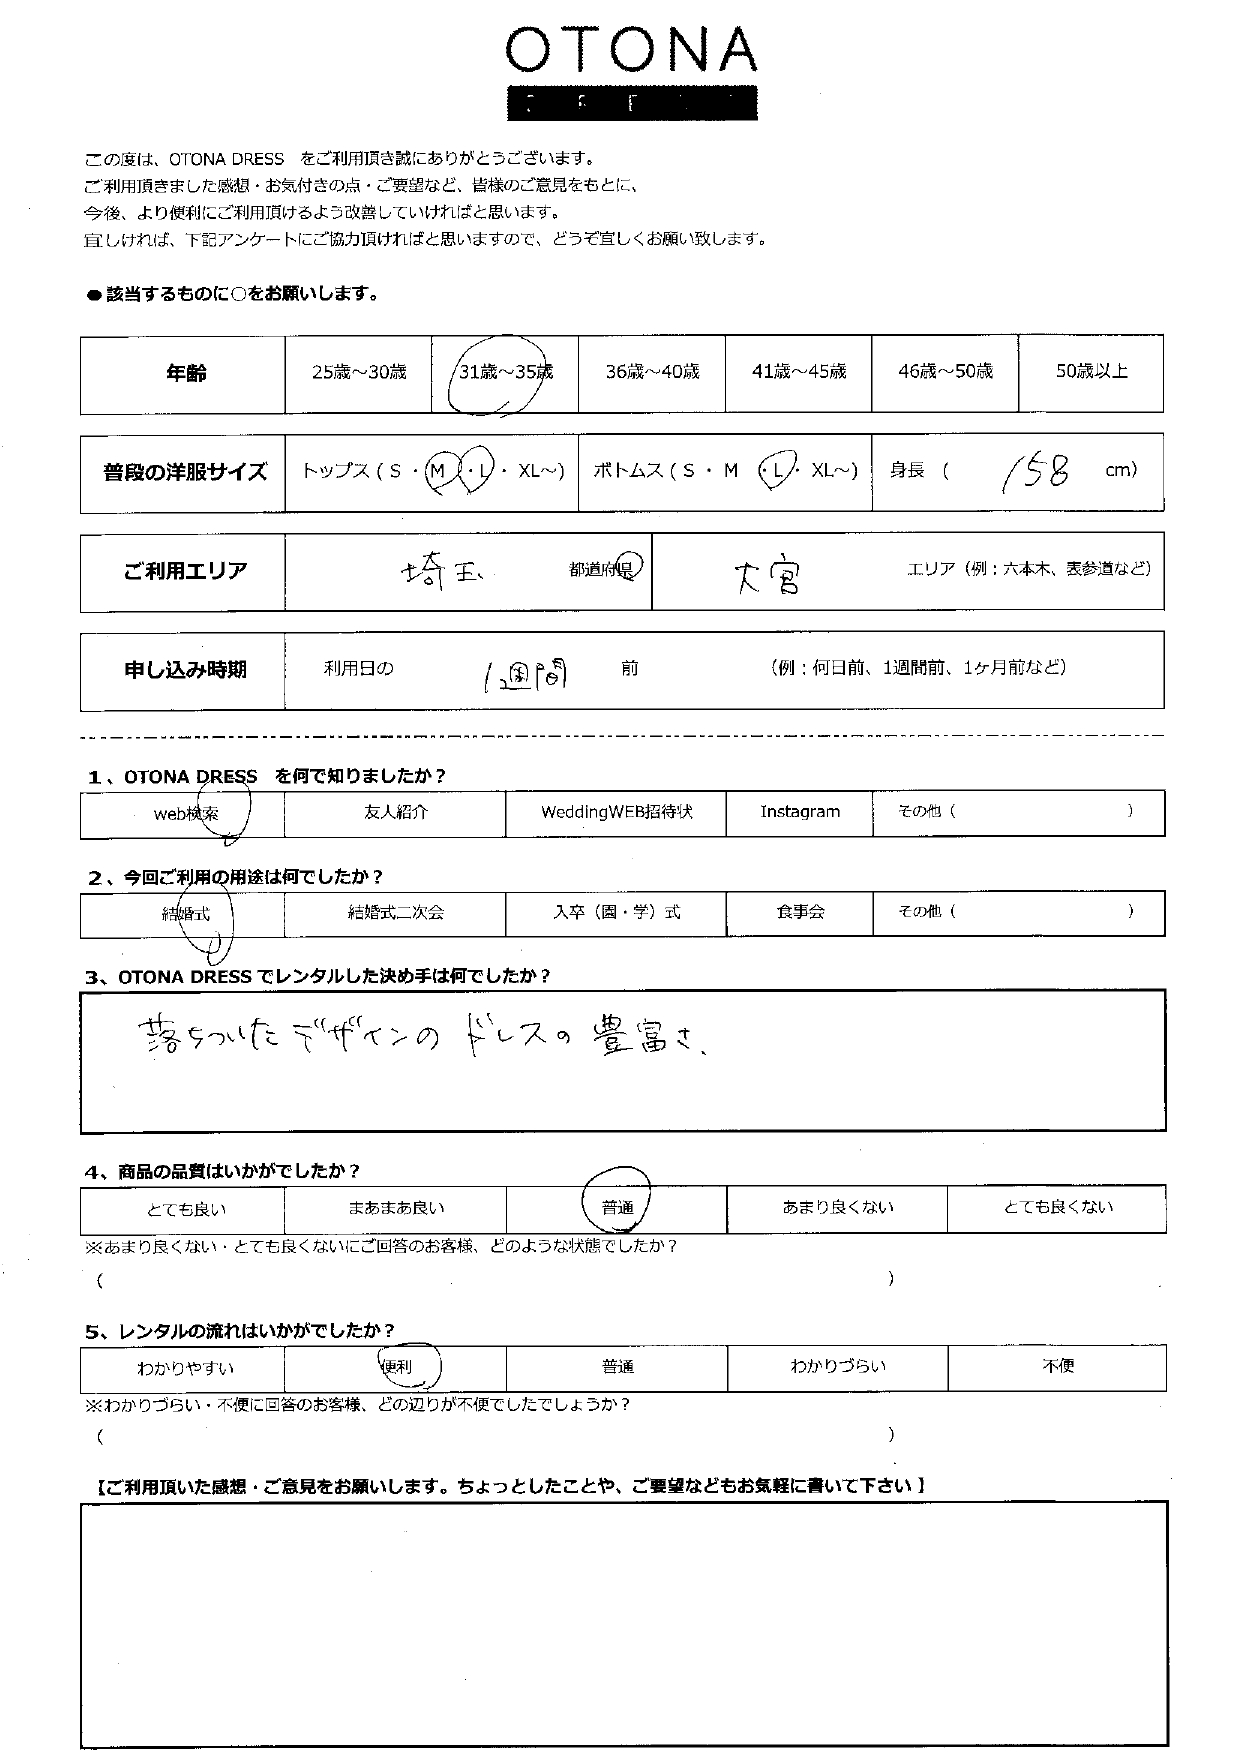 OTONA
この度は、OTONA DRESS をご利用頂き誠にありがとうございます。
ご利用頂きました感想・お気付きの点・ご要望など、皆様のご意見をもとに、
今後、より便利にご利用頂けるよう改善していければと思います。
宜しければ、下記アンケートにご協力頂ければと思いますので、どうぞ宜しくお願い致します。
●該当するものに○をお願いします。
年齢 25歳～30歳 31歳～35歳 36歳～40歳 41歳～45歳 46歳～50歳 50歳以上
普段の洋服サイズ トップス（S・M・L・XL～） ボトムス（S・M・L・XL～） 身長（ 158 cm）
ご利用エリア 埼玉 都道府県 大宮 エリア（例：六本木、表参道など）
申し込み時期 利用日の 1週間 前 （例：何日前、1週間前、1ヶ月前など）
1、OTONA DRESS を何で知りましたか？
web検索 友人紹介 WeddingWEB招待状 Instagram その他（ ）
2、今回ご利用の用途は何でしたか？
結婚式 結婚式二次会 入卒（園・学）式 食事会 その他（ ）
3、OTONA DRESSでレンタルした決め手は何でしたか？
落ちついたデザインのドレスの豊富さ、
4、商品の品質はいかがでしたか？
とても良い まあまあ良い 普通 あまり良くない とても良くない
※あまり良くない・とても良くないにご回答のお客様、どのような状態でしたか？
（ ）
5、レンタルの流れはいかがでしたか？
わかりやすい 便利 普通 わかりづらい 不便
※わかりづらい・不便に回答のお客様、どの辺りが不便でしたでしょうか？
（ ）
【ご利用頂いた感想・ご意見をお願いします。ちょっとしたことや、ご要望などもお気軽に書いて下さい】